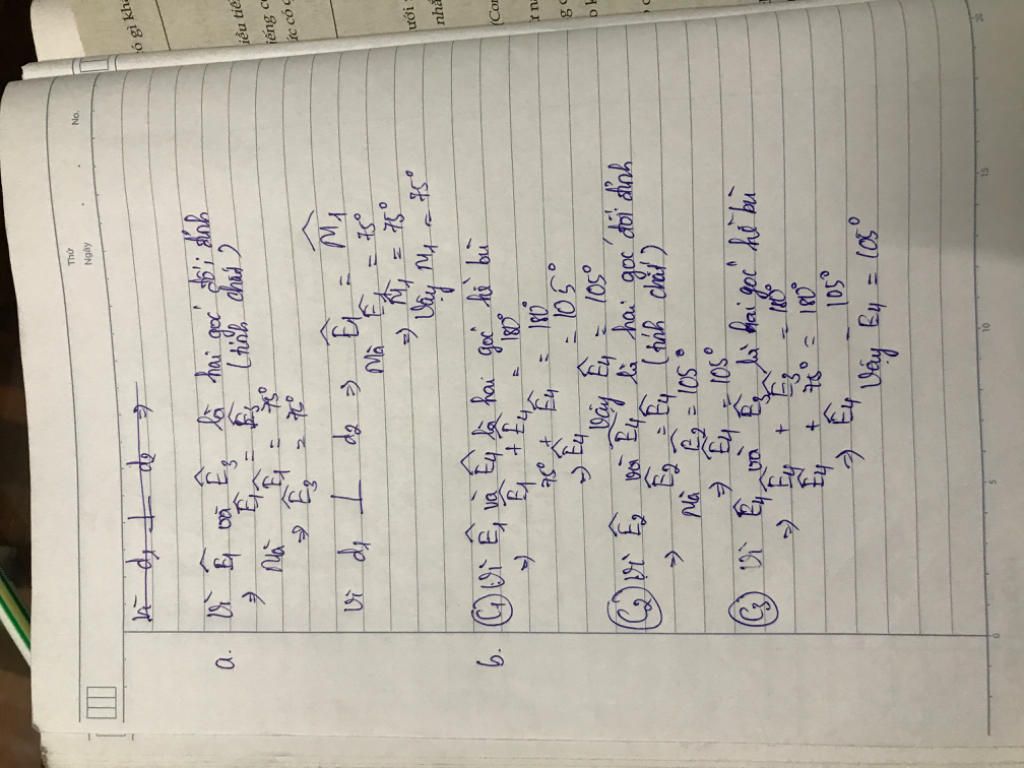 Thứ
Ngày
No.
Vì d₁ ⊥ d₂ ⇒
a. Vì Ê₁ và Ê₃ là hai góc đối đỉnh
⇒ Ê₁ = Ê₃ (tính chất)
Mà Ê₁ = 75°
⇒ Ê₃ = 75°
Vì d₁ ⊥ d₂ ⇒ Ê₁ = M̂₁
Mà Ê₁ = 75°
⇒ M̂₁ = 75°
Vậy M₁ = 75°
b. C₁ Vì Ê₁ và Ê₄ là hai góc kề bù
⇒ Ê₁ + Ê₄ = 180°
75° + Ê₄ = 180°
⇒ Ê₄ = 105°
Vậy Ê₄ = 105°
C₂ Vì Ê₂ và Ê₄ là hai góc đối đỉnh
⇒ Ê₂ = Ê₄ (tính chất)
Mà Ê₂ = 105°
⇒ Ê₄ = 105°
C₃ Vì Ê₄ và Ê₃ là hai góc kề bù
⇒ Ê₄ + Ê₃ = 180°
Ê₄ + 75° = 180°
⇒ Ê₄ = 105°
Vậy E₄ = 105°
0
5
10
15
20